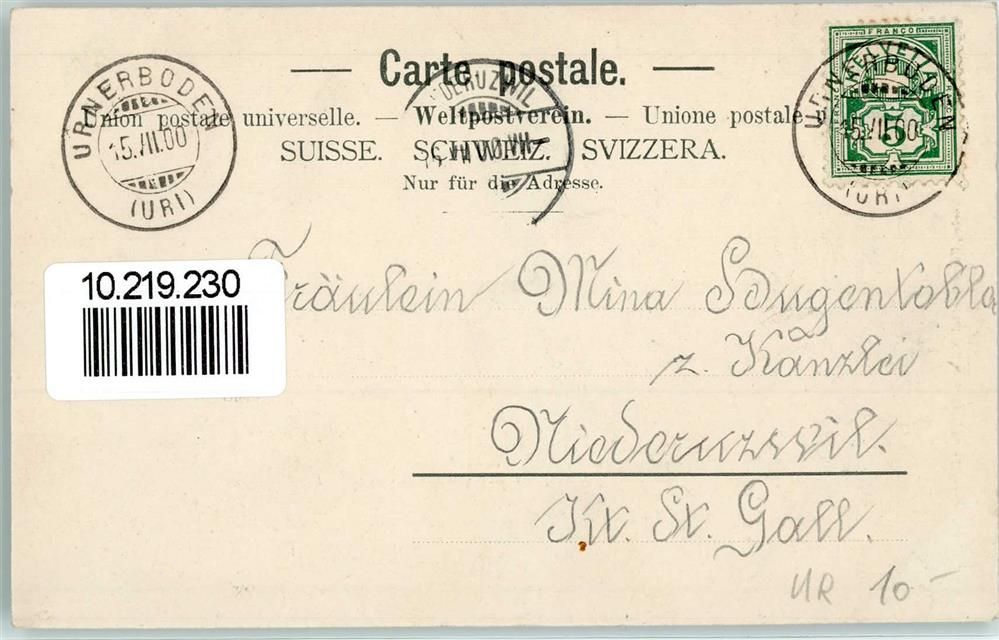 Carte postale.
Union postale universelle. — Weltpostverein. — Unione postale
SUISSE. SCHWEIZ. SVIZZERA.
Nur für die Adresse.
URNERBODEN
15.VII.00
(URI)
DERUZWIL
FRANCO
HELVETIA
5
URNERBODEN
15.VII.00
(URI)
10.219.230
Fräulein Mina Hugentobler
z. Kanzlei
Niederuzwil.
Kt. St. Gall.
UR 10-